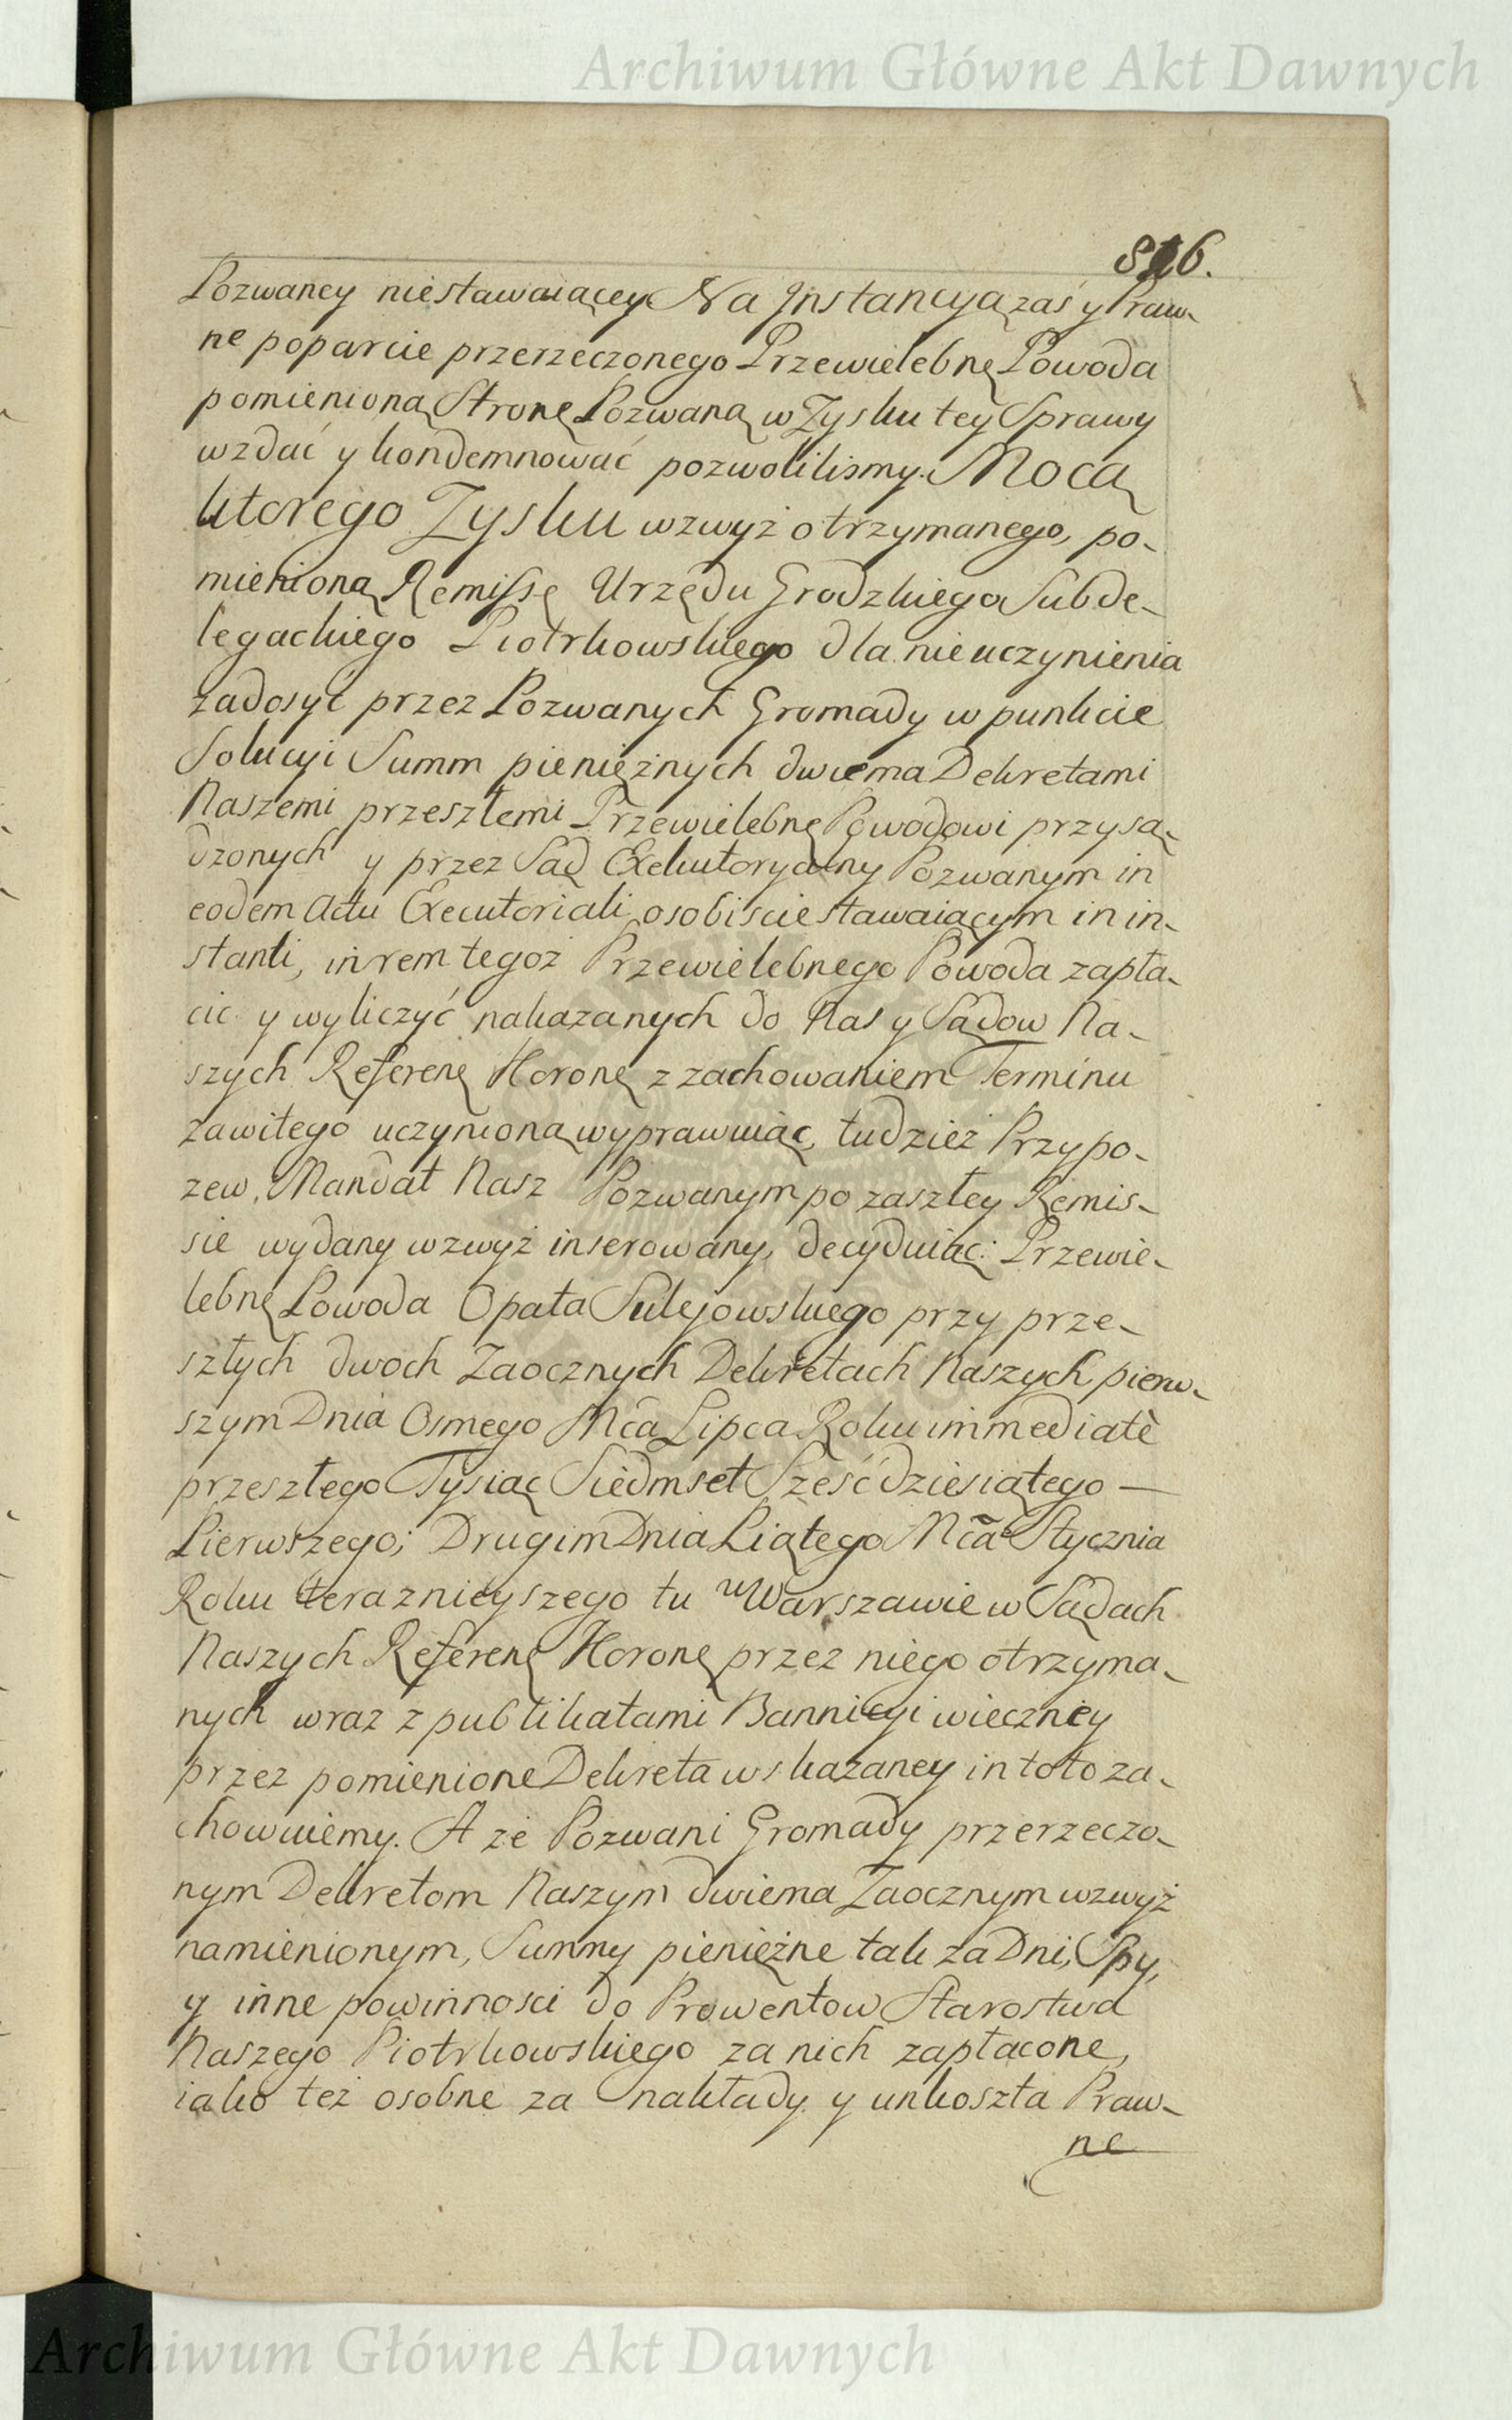 Archiwum Główne Akt Dawnych
816.
Pozwaney niestawaiącey Na Jnstancyą zaś y Praw-
ne poparcie przerzeczonego Przewielebnę Powoda
pomienioną Stronę Pozwaną w Zysku tey Sprawy
wzdać y kondemnować pozwolilismy. Mocą
ktorego Zysku wzwyż otrzymanego, po-
mienioną Remissę Urzędu Grodzkiego Subde-
legackiego Piotrkowskiego dla nieuczynienia
zadosyć przez Pozwanych Gromady w punkcie
Solucyi Summ pieniężnych dwiema Dekretami
Naszemi przeszłemi Przewielebnę Powodowi przysą-
dzonych y przez Sąd Exekutoryalny Pozwanym in
eodem Actu Executoriali osobiscie stawaiącym in in-
stanti, in rem tegoż Przewielebnego Powoda zapła-
cic y wyliczyć nakazanych do Nas y Sądow Na-
szych Referenę Koronę z zachowaniem Terminu
zawitego uczynioną wyprawuiąc, tudzież Przypo-
zew, Mandat Nasz Pozwanym po zaszłey Remis-
sie wydany wzwyż inserowany, decyduiąc: Przewie-
lebnę Powoda Opata Sulejowskiego przy prze-
szłych dwoch Zaocznych Dekretach Naszych pierw-
szym Dnia Osmego Mca Lipca Roku immediatè
przeszłego Tysiąc Siedmset Sześćdziesiątego —
Pierwszego; Drugim Dnia Piątego Mca Stycznia
Roku teraznieyszego tu w Warszawie w Sądach
Naszych Referenę Koronę przez niego otrzyma-
nych wraz z publikatami Bannicyi wieczney
przez pomienione Dekreta wskazaney in toto za-
chowuiemy. A że Pozwani Gromady przerzeczo-
nym Dekretom Naszym dwiema Zaocznym wzwyż
namienionym, Summy pieniężne tak za Dni, Spy,
y inne powinnosci do Prowentow Starostwa
Naszego Piotrkowskiego za nich zapłacone,
iako też osobne za nakłady y unkoszta Praw-
ne
Archiwum Główne Akt Dawnych